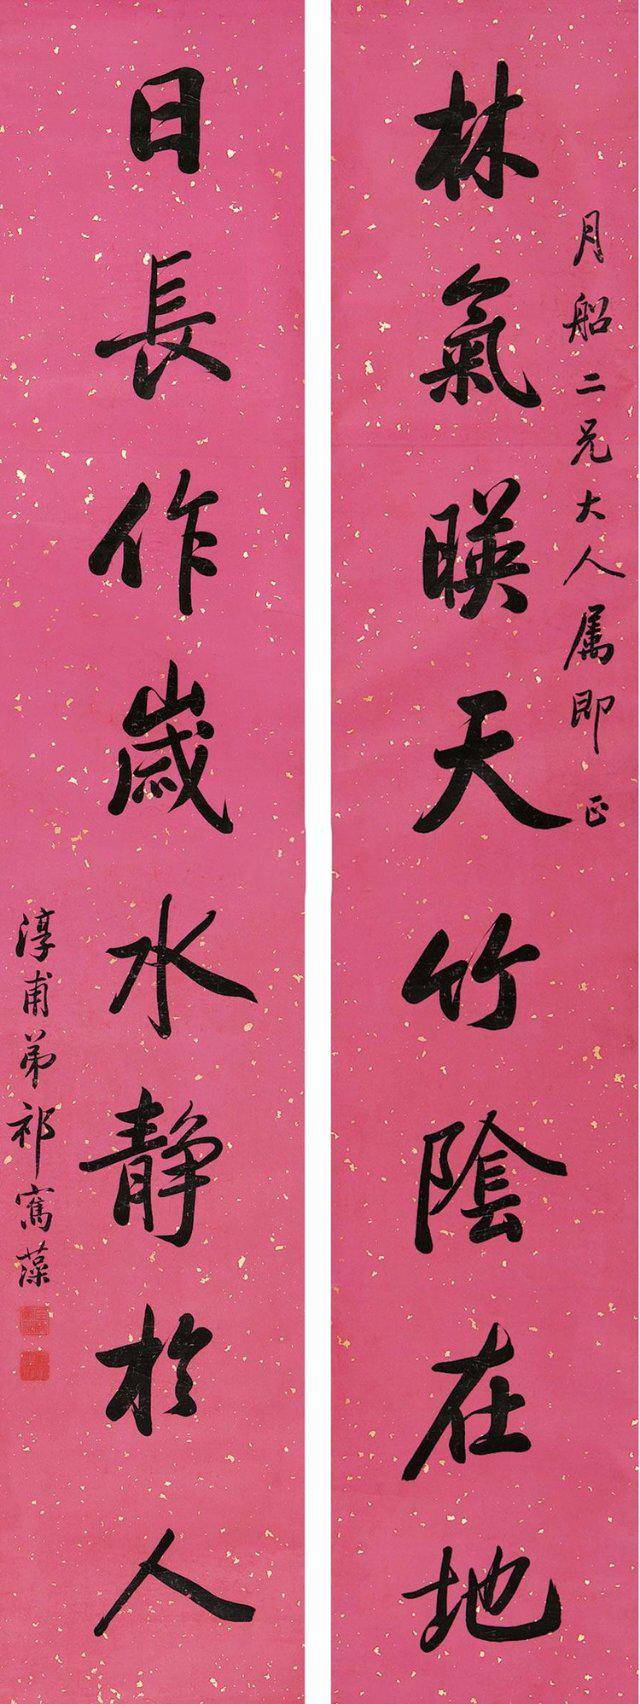 月船二兄大人属即正
林氣暎天竹陰在地
日長作歲水靜於人
淳甫弟祁寯藻